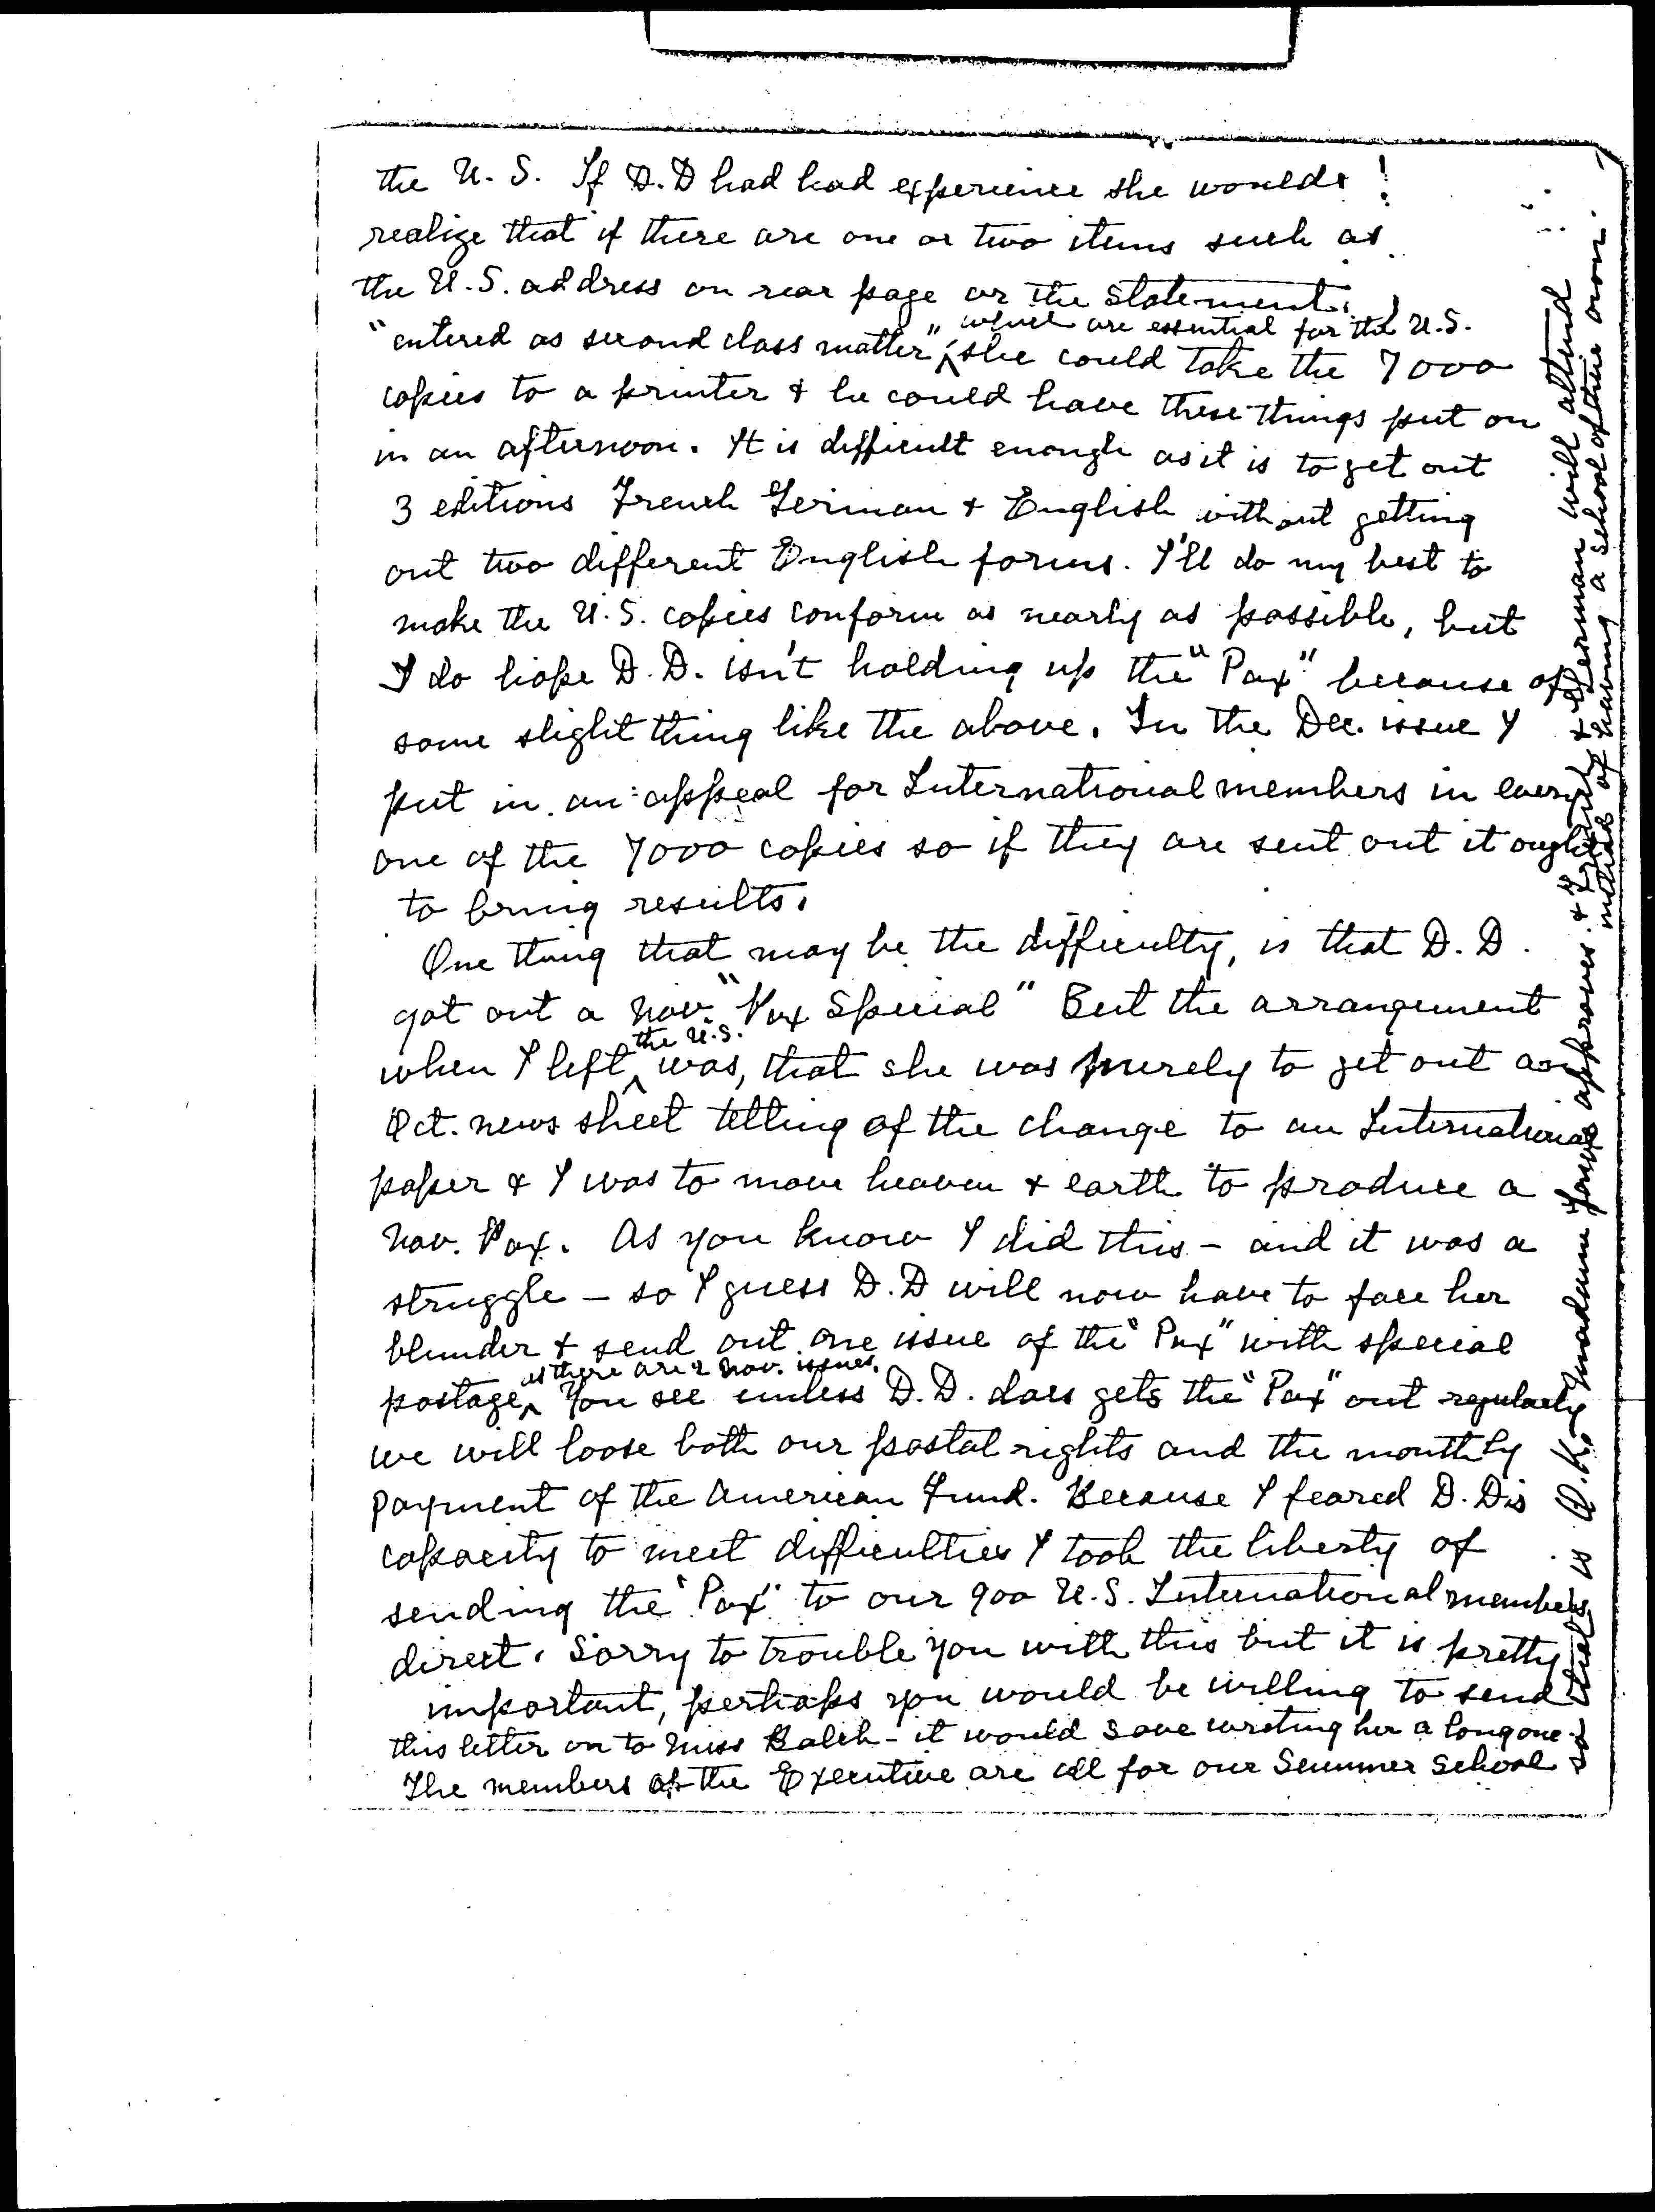 the U. S. If D. D had had experience she would
realize that if there are one or two items such as
the U. S. address on rear page or the statement
which are essential for the U. S.
"entered as second class matter", she could take the 7000
copies to a printer & he could have these things put on
in an afternoon. It is difficult enough as it is to get out
3 editions French German & English without getting
out two different English forms. I'll do my best to
make the U. S. copies conform as nearly as possible, but
I do hope D. D. isn't holding up the "Pax" because of
some slight thing like the above. In the Dec. issue I
put in an appeal for International members in every
one of the 7000 copies so if they are sent out it ought
to bring results.
One thing that may be the difficulty, is that D. D.
got out a Nov. "Pax Special" But the arrangement
the U. S.
when I left ^ was, that she was purely to get out an
Oct. news sheet telling of the change to an International
paper & I was to move heaven & earth to produce a
Nov. Pax. As you know I did this - and it was a
struggle - so I guess D. D will now have to face her
blunder & send out one issue of the "Pax" with special
as there are 2 Nov. issues.
postage ^ You see unless D. D. does gets the "Pax" out regularly
we will loose both our postal rights and the monthly
payment of the American Fund. Because I feared D. D's
capacity to meet difficulties I took the liberty of
sending the "Pax" to our 900 U. S. International members
direct. Sorry to trouble you with this but it is pretty
important, perhaps you would be willing to send
this letter on to Miss Balch - it would save writing her a long one.
The members of the Executive are all for our Summer School
so that is O. K. Madame Jouve approves. & French & German will attend
instead of having a school of their own.